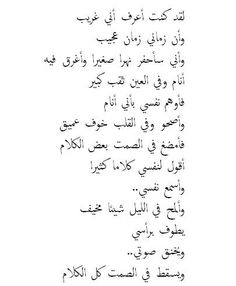 لقد كنت أعرف أني غريب
وأن زماني زمان عجيب
وأني سأحفر نهرا صغيرا وأغرق فيه
أنام وفي العين ثقب كبير
فأوهم نفسي بأني أنام
وأصحو وفي القلب خوف عميق
فأمضغ في الصمت بعض الكلام
أقول لنفسي كلاما كثيرا
وأسمع نفسي..
وألمح في الليل شيئا مخيف
يطوف برأسي
ويخنق صوتي..
ويسقط في الصمت كل الكلام